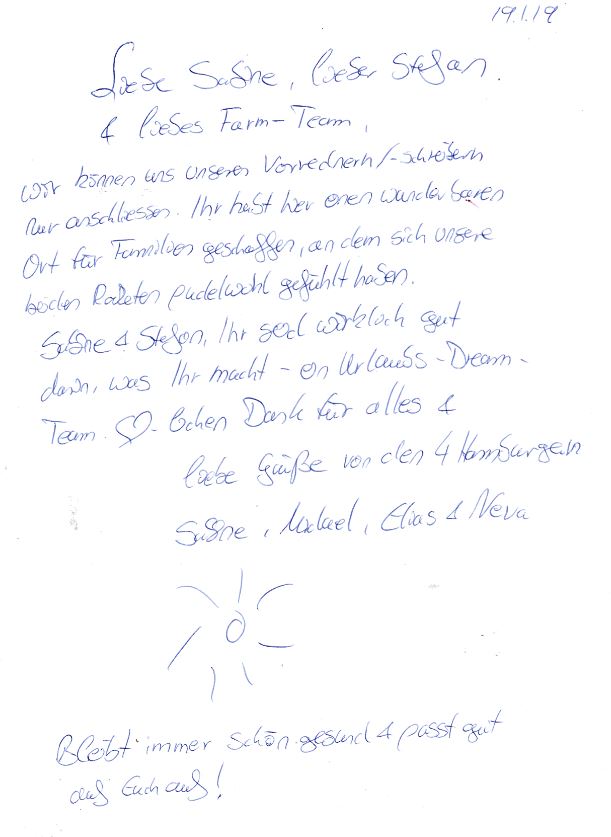 19.1.19
Liebe Sabine, lieber Stefan.
& liebes Farm-Team,
wir können uns unseren Vorrednern/-schreibern
nur anschliessen. Ihr habt hier einen wunderbaren
Ort für Familien geschaffen, an dem sich unsere
beiden Raketen pudelwohl gefühlt haben.
Sabine & Stefan, Ihr seid wirklich gut
darin, was Ihr macht - ein Urlaubs-Dream-
Team. ♡-lichen Dank für alles &
liebe Grüße von den 4 Hamburgern
Sabine, Michael, Elias & Neva
Bleibt immer schön gesund & passt gut
auf Euch auf!